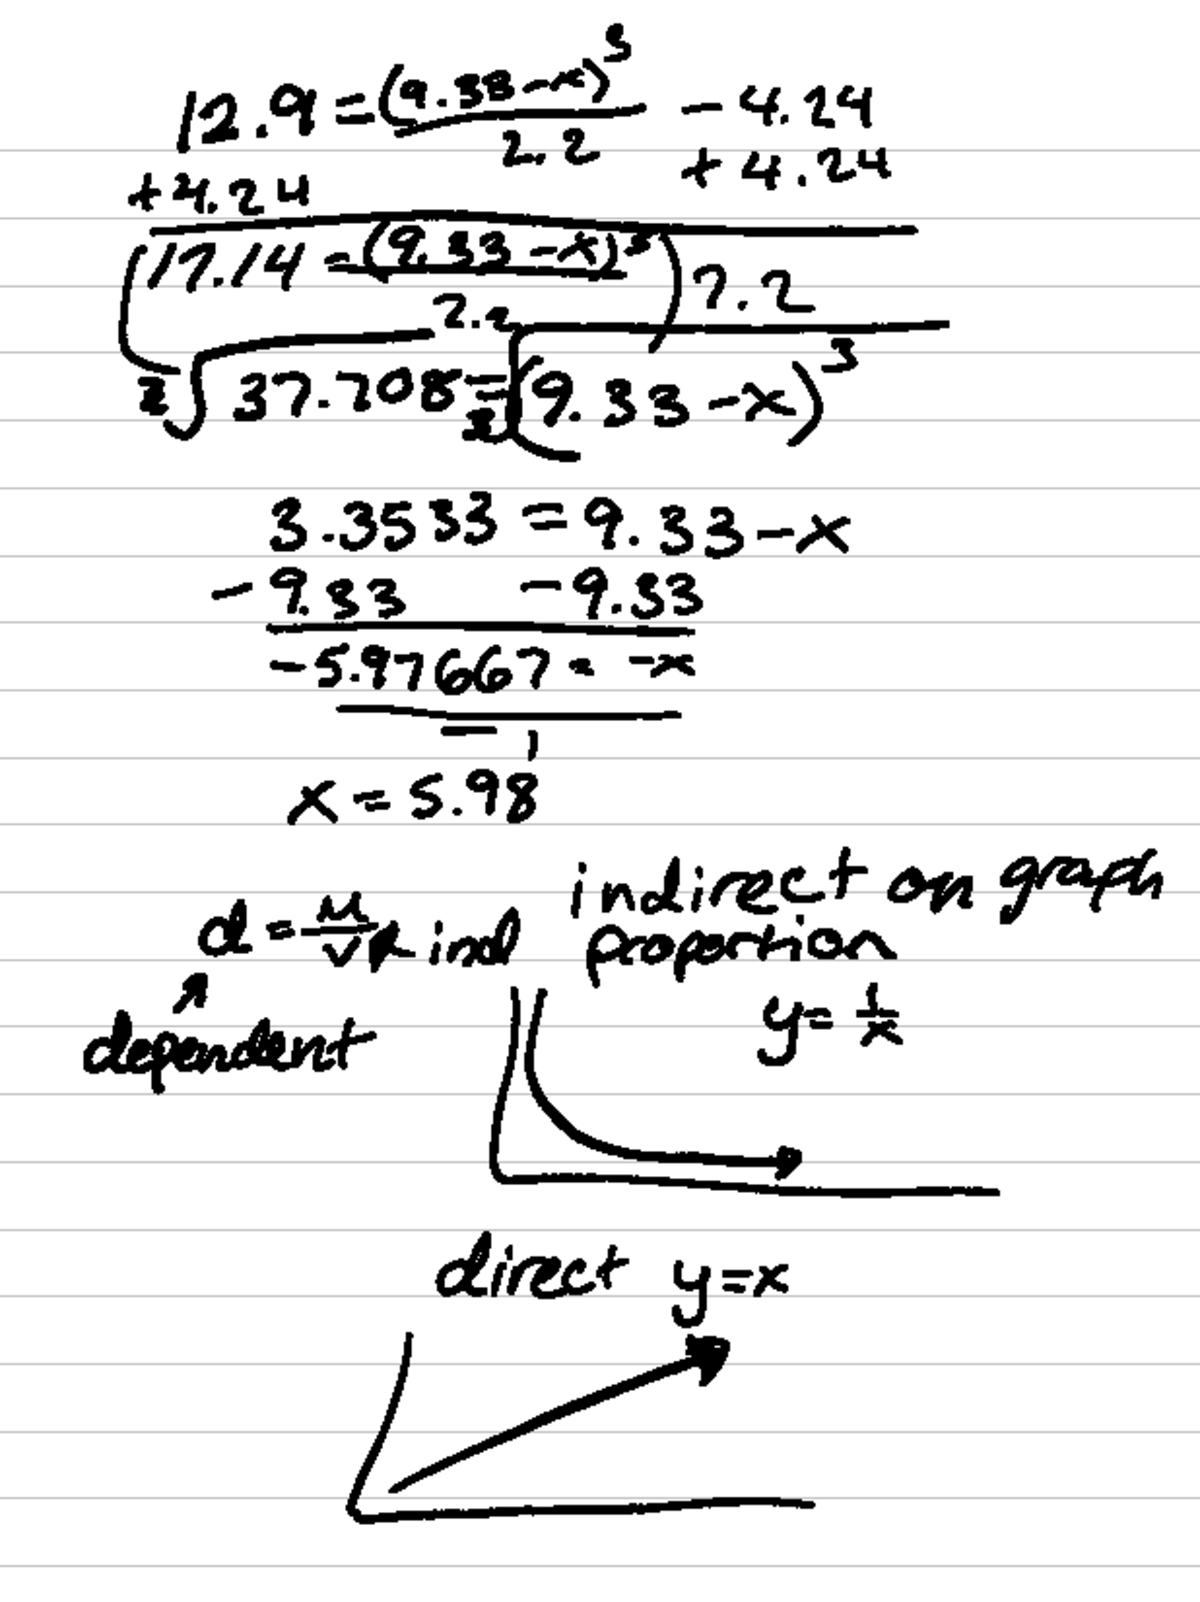 12.9 = (9.33 - x)^3 / 2.2 - 4.24
+4.24 + 4.24
(17.14 = (9.33 - x)^3 / 2.2) 2.2
3√37.708 = 3√(9.33 - x)^3
3.3533 = 9.33 - x
- 9.33 - 9.33
-5.97667 = -x
- 1
x = 5.98
indirect on graph
d = M/V ind proportion
dependent y = 1/x
direct y = x